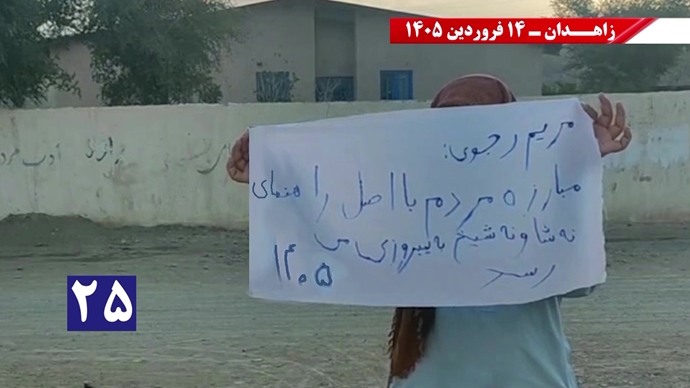 زاهـدان ـ ۱۴ فروردین ۱۴۰۵
مریم رجوی:
مبارزه مردم با اصل راهنمای
نه شاه نه شیخ به پیروزی می
رسد
۱۴۰۵
۲۵